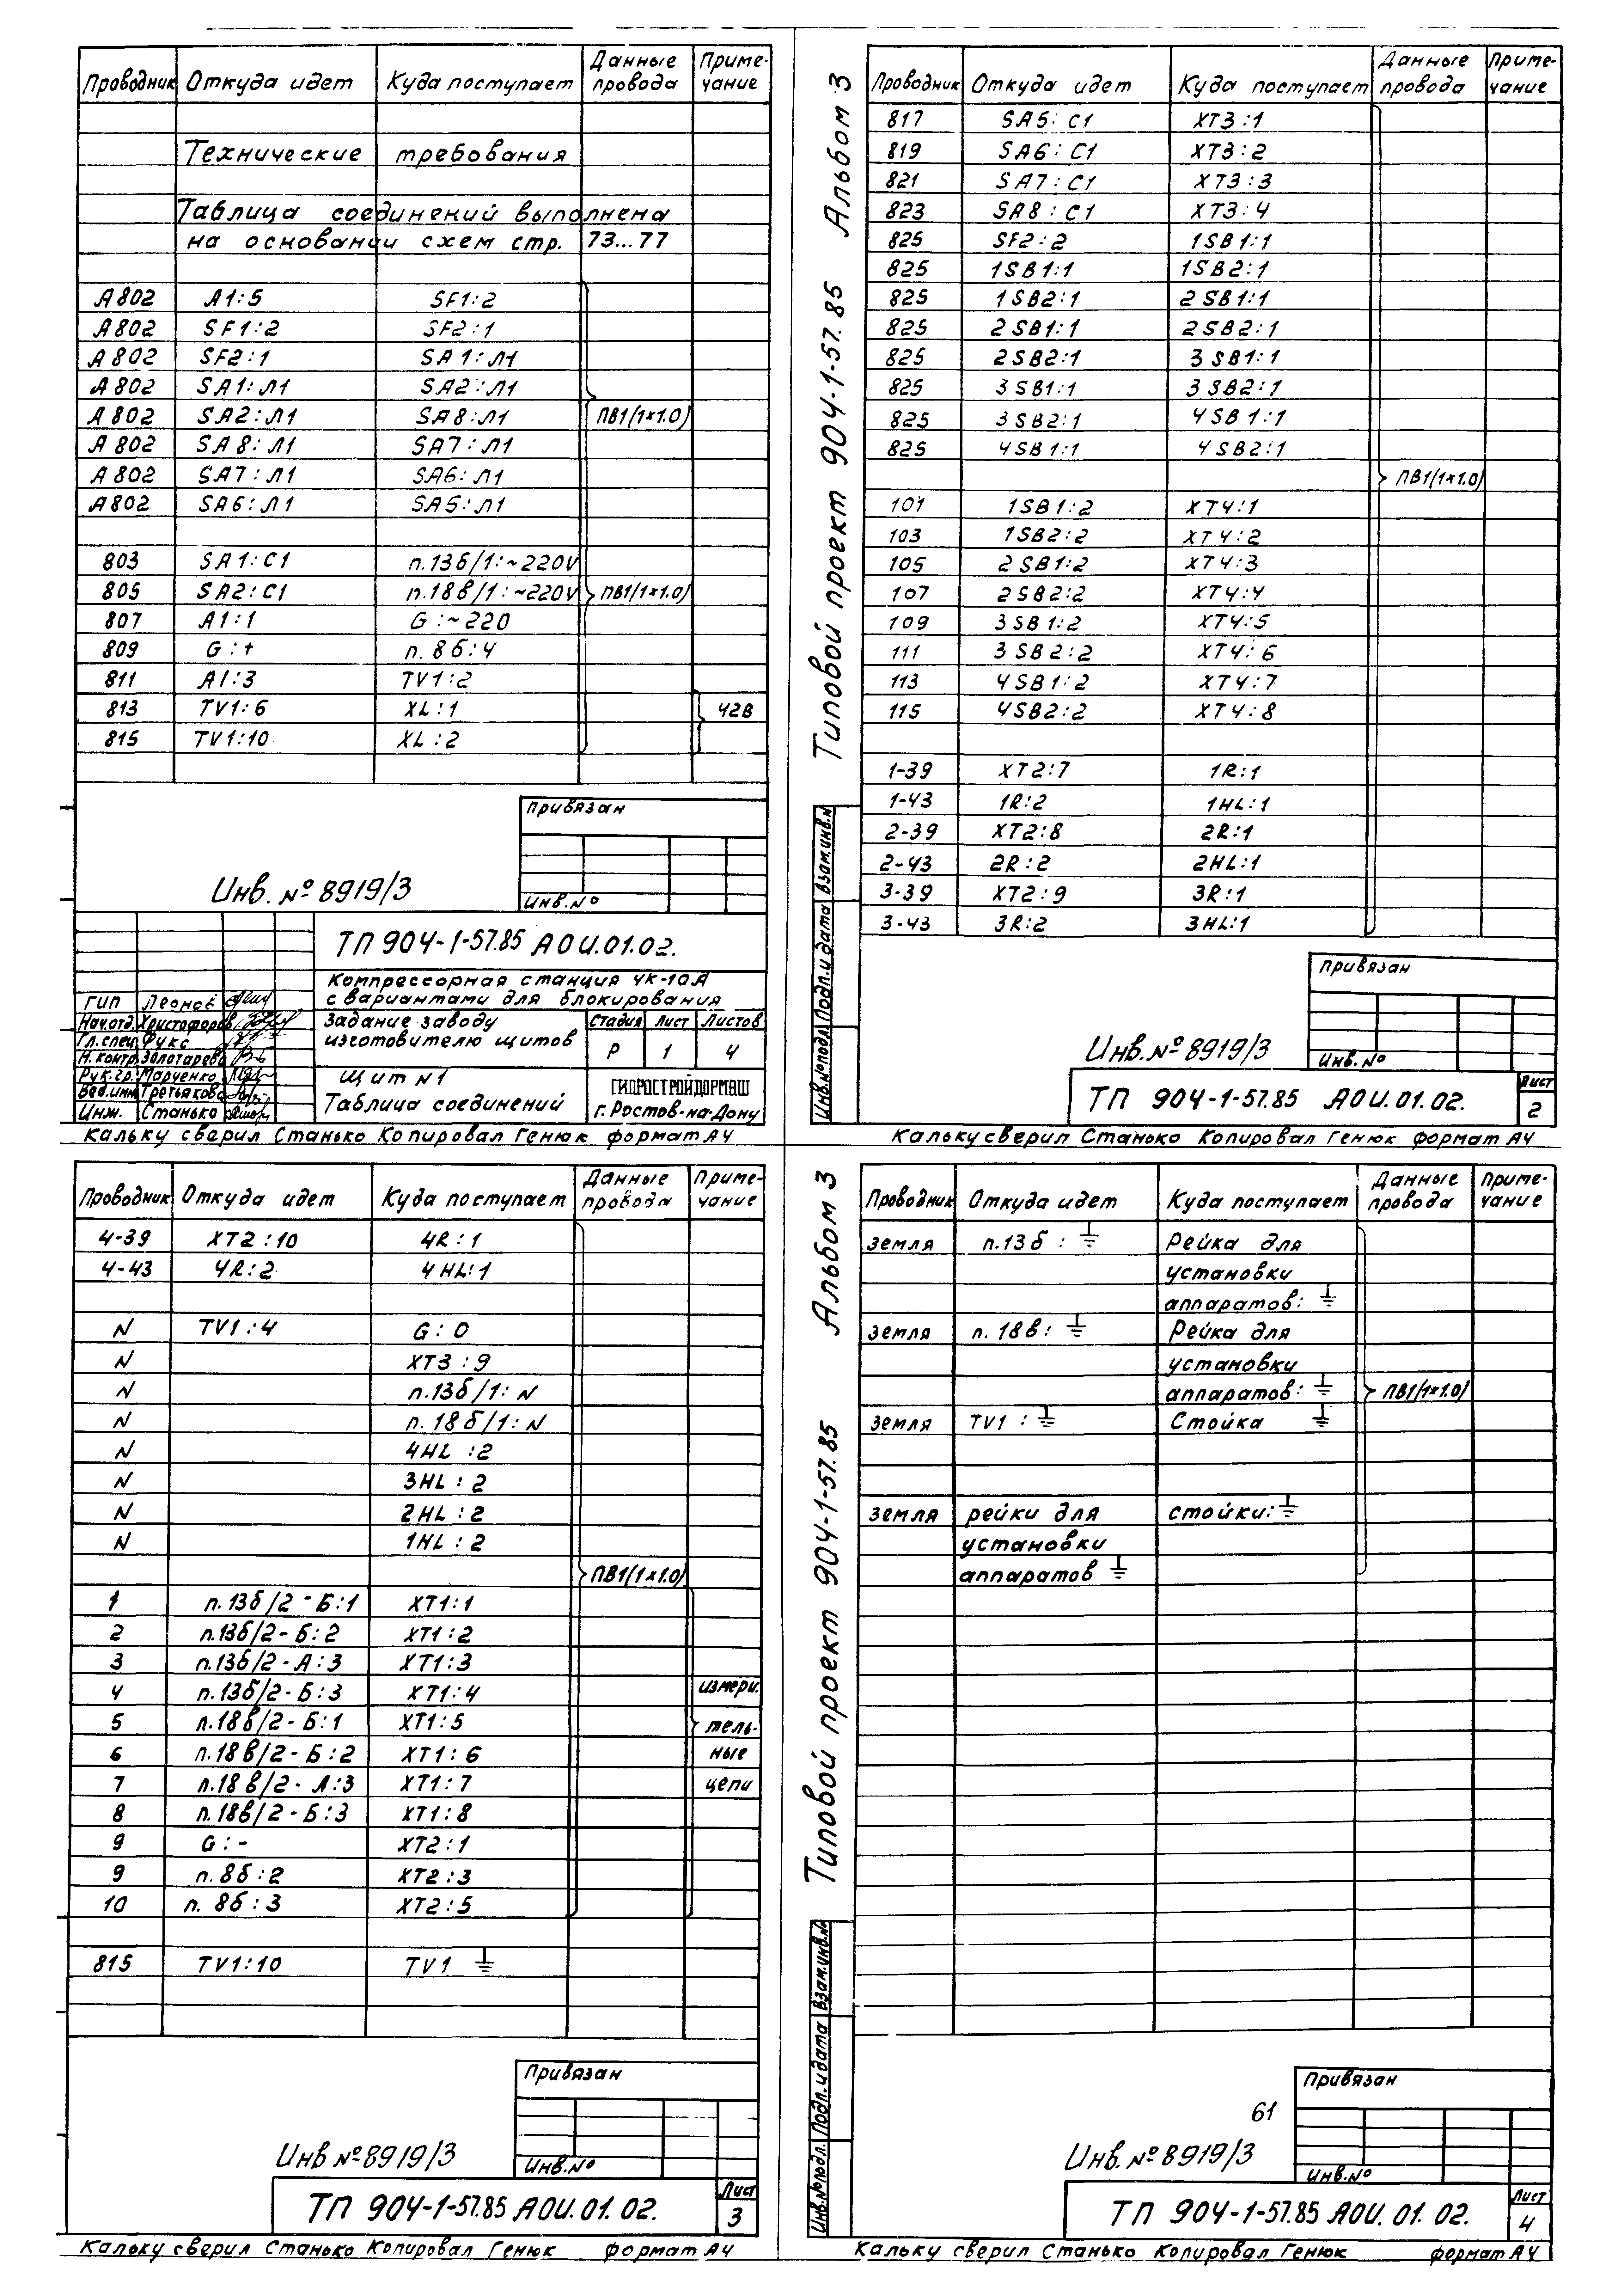 Проводник Откуда идет Куда поступает Данные провода Примечание
Технические требования
Таблица соединений выполнена
на основании схем стр. 73...77
А802 А1:5 SF1:2
А802 SF1:2 SF2:1
А802 SF2:1 SA1:Л1
А802 SA1:Л1 SA2:Л1
А802 SA2:Л1 SA8:Л1 ПВ1(1×1.0)
А802 SA8:Л1 SA7:Л1
А802 SA7:Л1 SA6:Л1
А802 SA6:Л1 SA5:Л1
803 SA1:C1 п.13б/1:~220V
805 SA2:C1 п.18в/1:~220V ПВ1(1×1.0)
807 А1:1 G:~220
809 G:+ п.8б:4
811 А1:3 TV1:2
813 TV1:6 XL:1 42В
815 TV1:10 XL:2
Привязан
Инв.№
Инв. № 8919/3
ТП 904-1-57.85 АОИ.01.02.
Компрессорная станция 4К-10А
с вариантами для блокирования
Задание заводу
изготовителю щитов
Стадия Лист Листов
Р 1 4
Щит №1
Таблица соединений
ГИПРОСТРОЙДОРМАШ
г. Ростов-на-Дону
ГИП
Нач.отд. Христофоров
Гл.спец. Фукс
Н.контр. Золотарева
Рук.гр. Марченко
Вед.инж. Третьякова
Инж. Станько
Кальку сверил Станько Копировал Генюк формат А4
Типовой проект 904-1-57.85 Альбом 3
Проводник Откуда идет Куда поступает Данные провода Примечание
817 SA5:C1 XT3:1
819 SA6:C1 XT3:2
821 SA7:C1 XT3:3
823 SA8:C1 XT3:4
825 SF2:2 1SB1:1
825 1SB1:1 1SB2:1
825 1SB2:1 2SB1:1
825 2SB1:1 2SB2:1
825 2SB2:1 3SB1:1
825 3SB1:1 3SB2:1
825 3SB2:1 4SB1:1
825 4SB1:1 4SB2:1
ПВ1(1×1.0)
101 1SB1:2 XT4:1
103 1SB2:2 XT4:2
105 2SB1:2 XT4:3
107 2SB2:2 XT4:4
109 3SB1:2 XT4:5
111 3SB2:2 XT4:6
113 4SB1:2 XT4:7
115 4SB2:2 XT4:8
1-39 XT2:7 1R:1
1-43 1R:2 1HL:1
2-39 XT2:8 2R:1
2-43 2R:2 2HL:1
3-39 XT2:9 3R:1
3-43 3R:2 3HL:1
Инв.№подл. Подп.и дата Взам.инв.№
Привязан
Инв.№
Инв.№ 8919/3
ТП 904-1-57.85 АОИ.01.02.
Лист
2
Кальку сверил Станько Копировал Генюк формат А4
Проводник Откуда идет Куда поступает Данные провода Примечание
4-39 XT2:10 4R:1
4-43 4R:2 4HL:1
N TV1:4 G:0
N XT3:9
N п.13б/1:N
N п.18б/1:N
N 4HL:2
N 3HL:2
N 2HL:2
N 1HL:2
ПВ1(1×1.0)
1 п.13б/2-Б:1 XT1:1
2 п.13б/2-Б:2 XT1:2
3 п.13б/2-А:3 XT1:3
4 п.13б/2-Б:3 XT1:4 измери-
5 п.18в/2-Б:1 XT1:5 тель-
6 п.18в/2-Б:2 XT1:6 ные
7 п.18в/2-А:3 XT1:7 цепи
8 п.18в/2-Б:3 XT1:8
9 G:- XT2:1
9 п.8б:2 XT2:3
10 п.8б:3 XT2:5
815 TV1:10 TV1 ⏚
Привязан
Инв.№
Инв № 8919/3
ТП 904-1-57.85 АОИ.01.02.
Лист
3
Кальку сверил Станько Копировал Генюк формат А4
Типовой проект 904-1-57.85 Альбом 3
Проводник Откуда идет Куда поступает Данные провода Примечание
земля п.13б:⏚ Рейка для
установки
аппаратов:⏚
земля п.18в:⏚ Рейка для
установки
аппаратов:⏚ ПВ1(1×1.0)
земля TV1:⏚ Стойка ⏚
земля рейки для стойки:⏚
установки
аппаратов ⏚
Инв.№подл. Подп.и дата Взам.инв.№
61
Привязан
Инв.№
Инв.№8919/3
ТП 904-1-57.85 АОИ.01.02.
Лист
4
Кальку сверил Станько Копировал Генюк формат А4